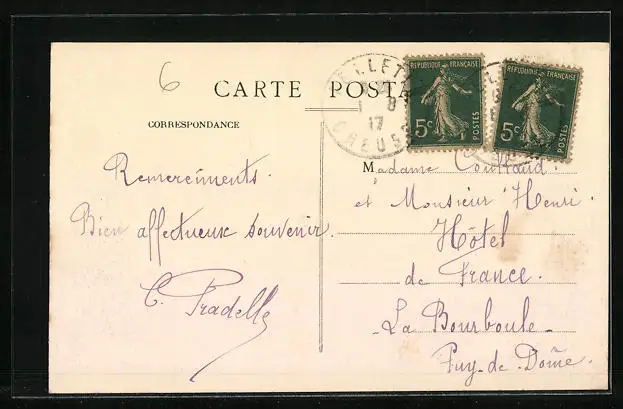 6
CARTE POSTA
CORRESPONDANCE
Remerciments.
Bien affectueux souvenir.
C. Pradelle
CREUSE
1 8
17
REPUBLIQUE FRANÇAISE
5c
POSTES
REPUBLIQUE FRANÇAISE
5c
POSTES
Madame
et Monsieur Henri
Hôtel
de France.
La Bourboule
Puy-de-Dôme.